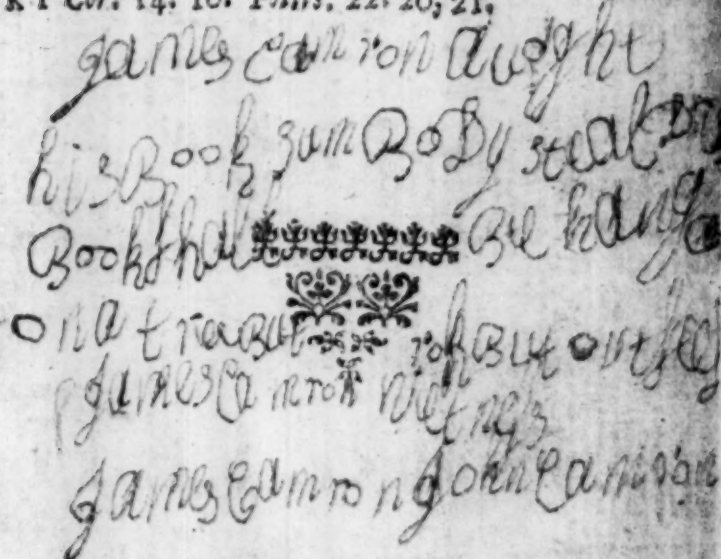 k 1 Cor. 14. 16. Psalms. 22. 26, 21.
James Camron aught
his Book sum BoDy steal
Book shall Be hang
on a tree But But out
James Camron witness
James Camron John Camron